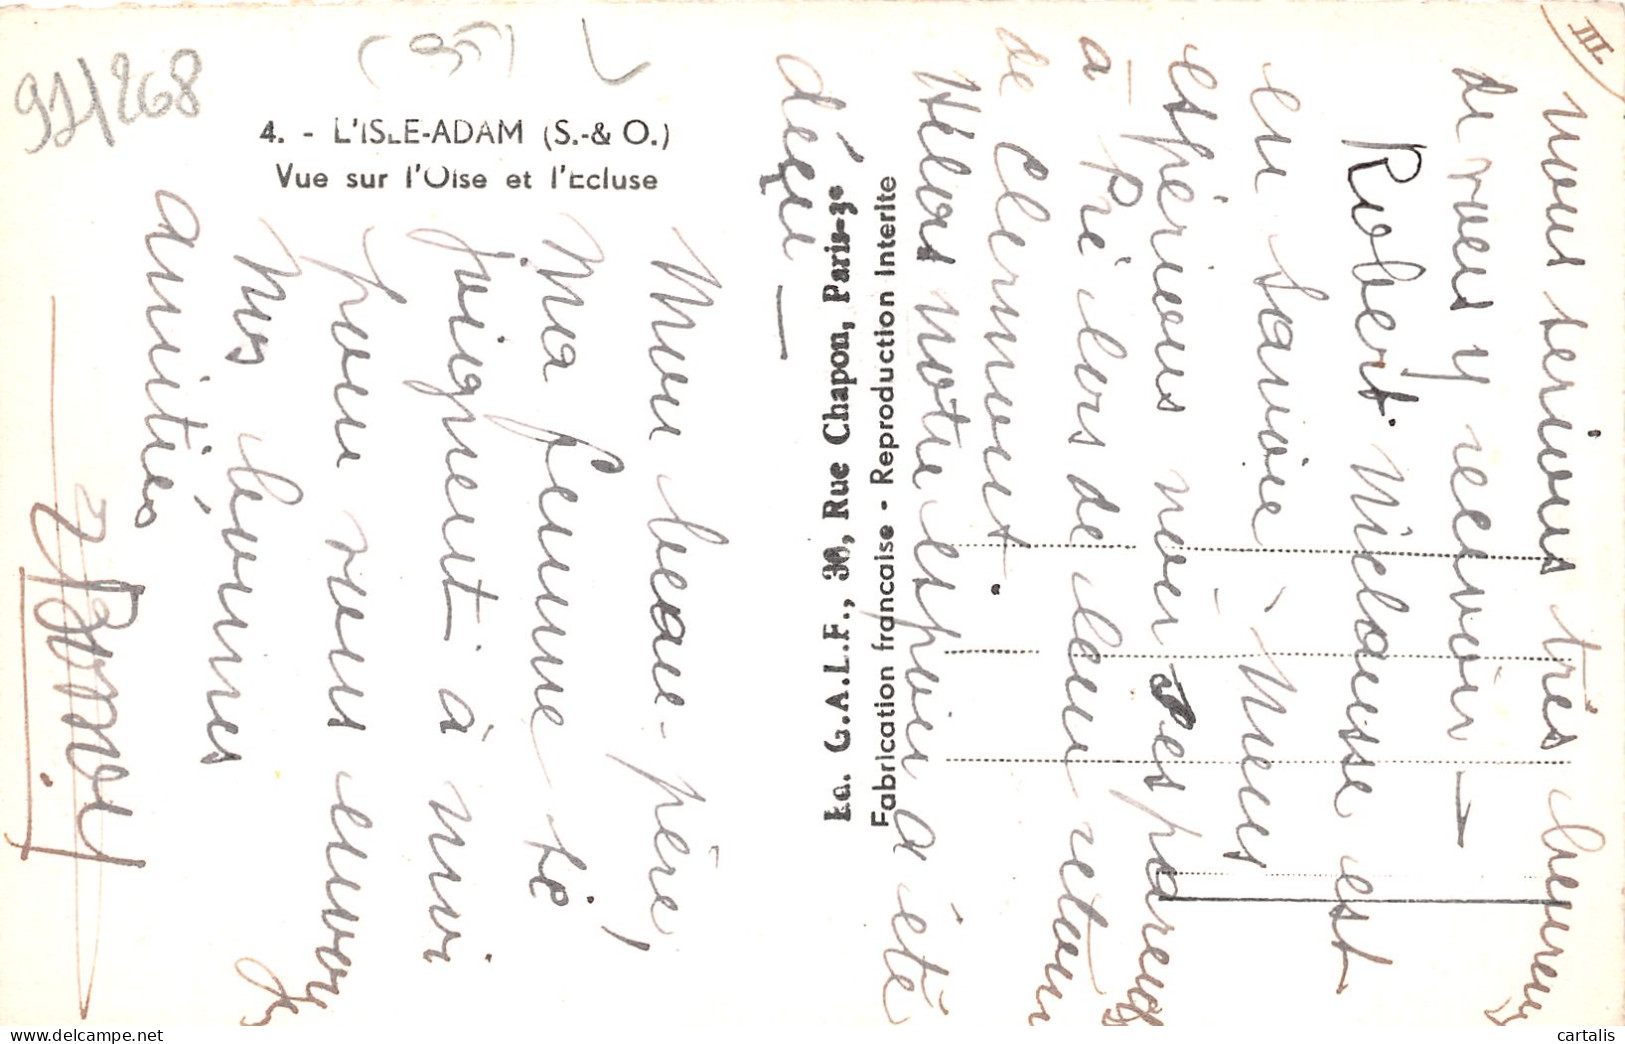 III.
nous serions très heureux
de vous y recevoir —
Robert Niclausse est
en Savoie. Nous
espérions voir ses parents
à Pré lors de leur retour
de Clermont.
Hélas notre espoir a été
déçu —
Mon beau-père,
ma femme se
joignent à moi
pour vous envoyer
nos bonnes
amitiés
91/268
(95)
4. - L'ISLE-ADAM (S.-& O.)
Vue sur l'Oise et l'Ecluse
Ed. G.A.L.F., 30, Rue Chapon, Paris-3e
Fabrication francaise - Reproduction interite
cartalis